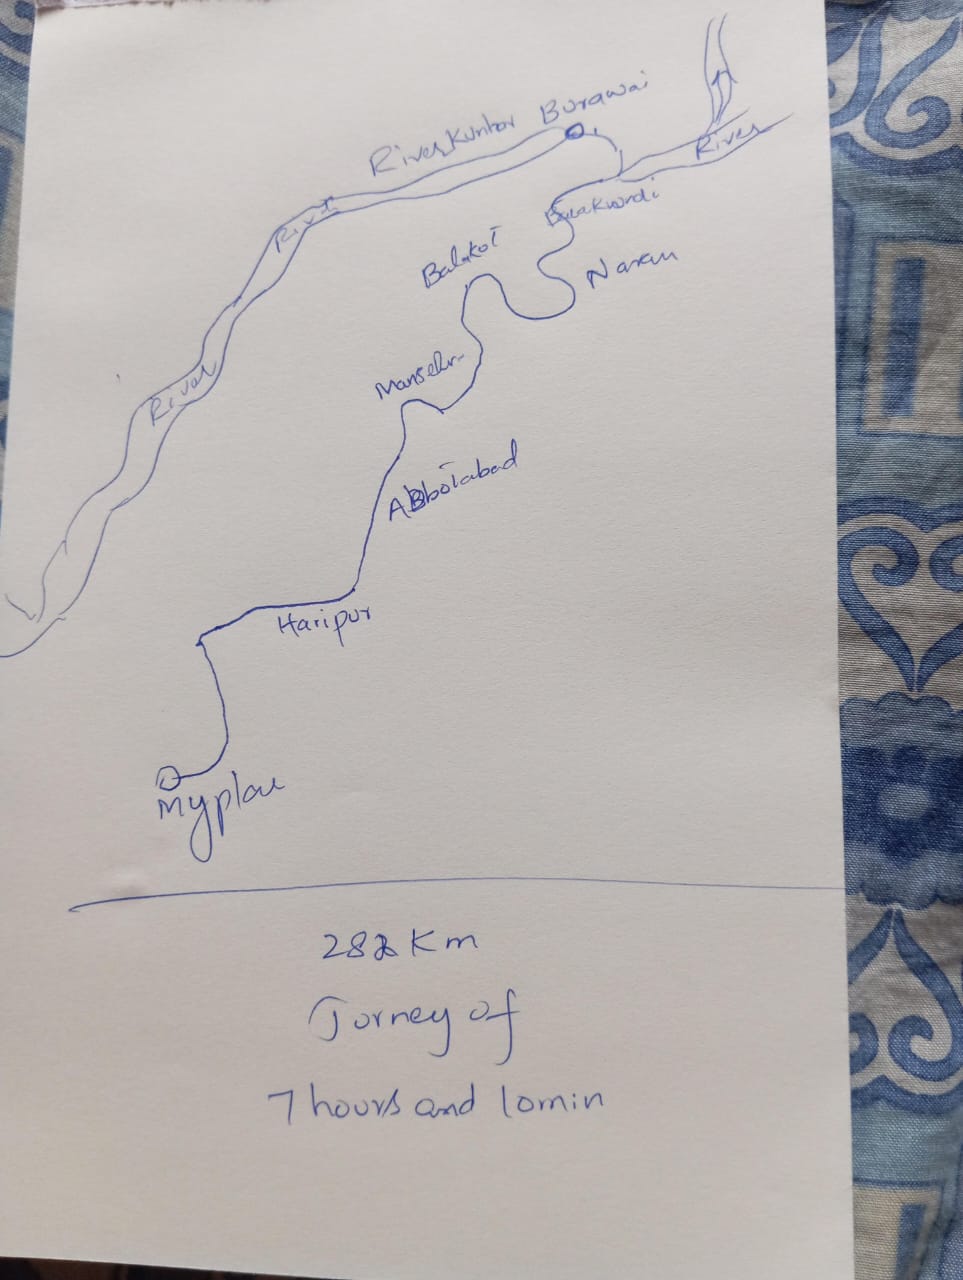 River Kunhar Burawai
River
River
River
Batakundi
Balakot
Naran
Mansehr
ABbotabad
Haripur
My place
282 Km
Jorney of
7 hours and 10 min